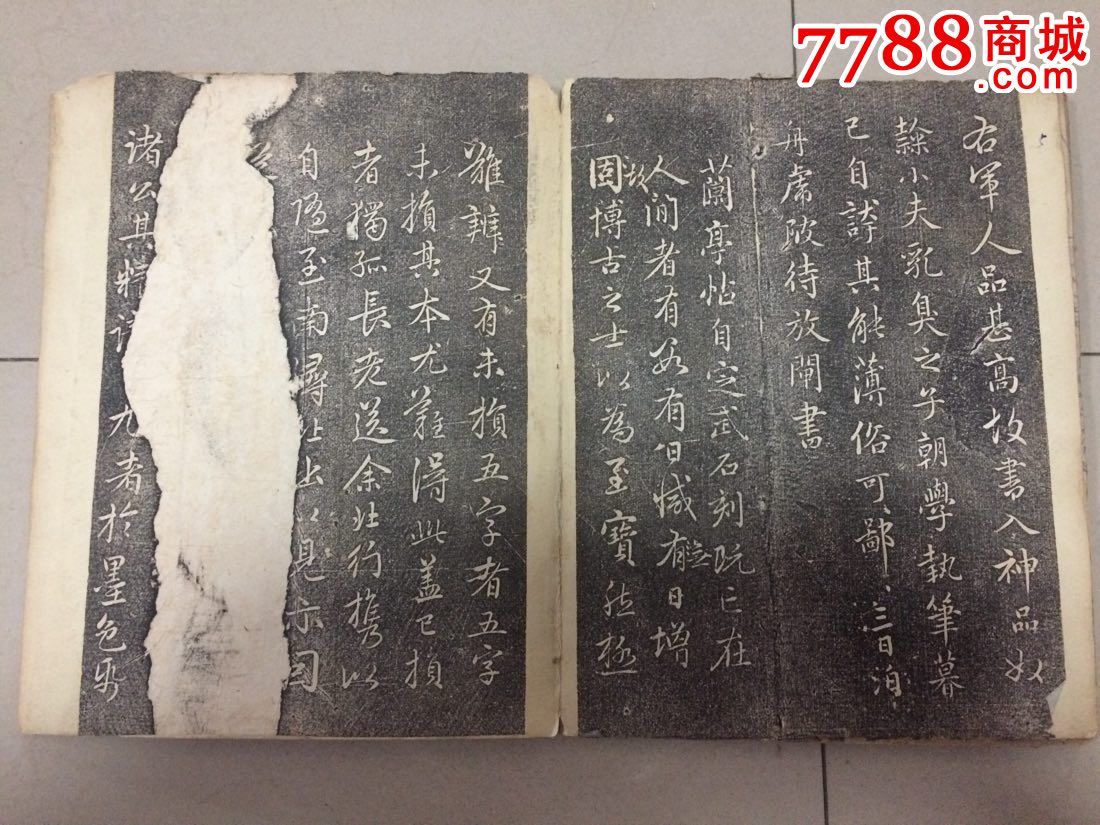 7788商城
.com
右軍人品甚高故書入神品奴
隸小夫乳臭之子朝學執筆暮
已自誇其能薄俗可鄙可鄙三日泊
舟虜陂待放閘書
蘭亭帖自定武石刻既亡在
人間者有數有日減無日增
故博古之士以為至寶然極
難辨又有未損五字者五字
未損其本尤難得此蓋已損
者獨孤長老送余北行携以
自隨至南潯北出以見示因
諸公其
尤者於墨色紙